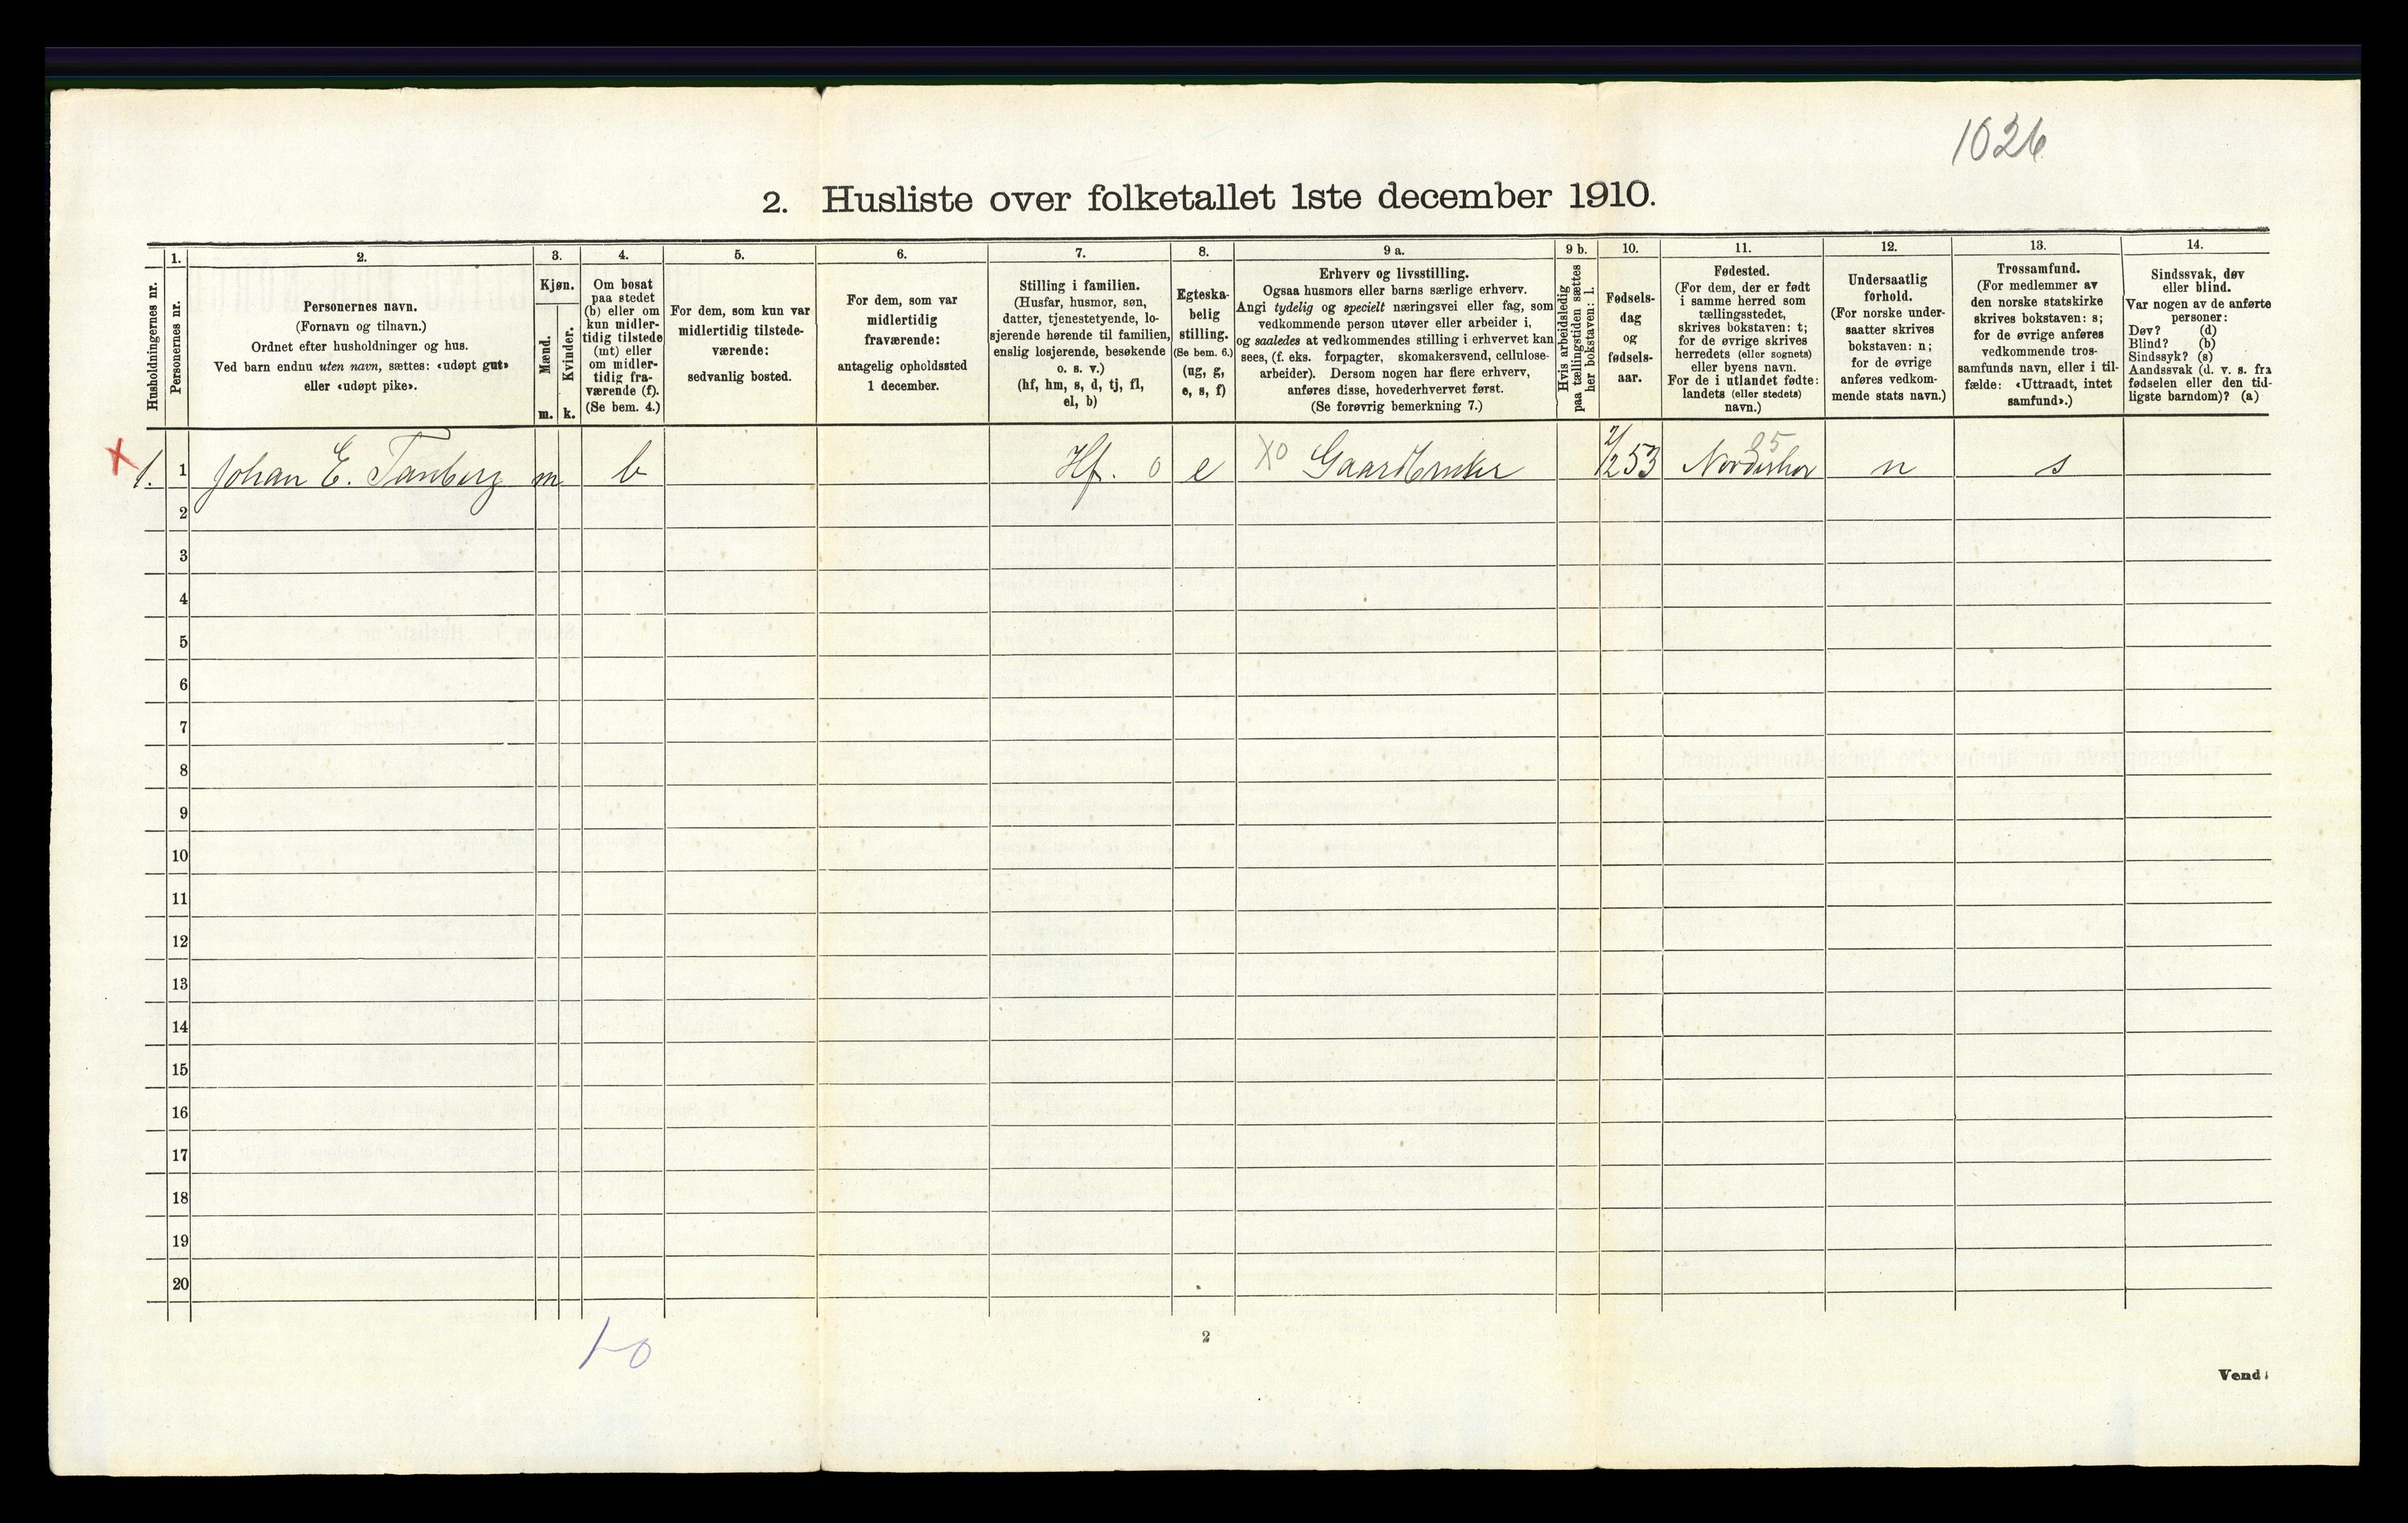 1026
2. Husliste over folketallet 1ste december 1910.
Husholdningernes nr.
1.
Personernes nr.
2.
Personernes navn.
(Fornavn og tilnavn.)
Ordnet efter husholdninger og hus.
Ved barn endnu uten navn, sættes: «udøpt gut»
eller «udøpt pike».
3.
Kjøn.
Mænd.
Kvinder.
m. k.
4.
Om bosat
paa stedet
(b) eller om
kun midler-
tidig tilstede
(mt) eller
om midler-
tidig fra-
værende (f).
(Se bem. 4.)
5.
For dem, som kun var
midlertidig tilstede-
værende:
sedvanlig bosted.
6.
For dem, som var
midlertidig
fraværende:
antagelig opholdssted
1 december.
7.
Stilling i familien.
(Husfar, husmor, søn,
datter, tjenestetyende, lo-
sjerende hørende til familien,
enslig losjerende, besøkende
o. s. v.)
(hf, hm, s, d, tj, fl,
el, b)
8.
Egteska-
belig
stilling.
(Se bem. 6.)
(ug, g,
e, s, f)
9 a.
Erhverv og livsstilling.
Ogsaa husmors eller barns særlige erhverv.
Angi tydelig og specielt næringsvei eller fag, som
vedkommende person utøver eller arbeider i,
og saaledes at vedkommendes stilling i erhvervet kan
sees, (f. eks. forpagter, skomakersvend, cellulose-
arbeider). Dersom nogen har flere erhverv,
anføres disse, hovederhvervet først.
(Se forøvrig bemerkning 7.)
9 b.
Hvis arbeidsledig
paa tællingstiden sættes
her bokstaven: l.
10.
Fødsels-
dag
og
fødsels-
aar.
11.
Fødested.
(For dem, der er født
i samme herred som
tællingsstedet,
skrives bokstaven: t;
for de øvrige skrives
herredets (eller sognets)
eller byens navn.
For de i utlandet fødte:
landets (eller stedets)
navn.)
12.
Undersaatlig
forhold.
(For norske under-
saatter skrives
bokstaven: n;
for de øvrige
anføres vedkom-
mende stats navn.)
13.
Trossamfund.
(For medlemmer av
den norske statskirke
skrives bokstaven: s;
for de øvrige anføres
vedkommende tros-
samfunds navn, eller i til-
fælde: «Uttraadt, intet
samfund».)
14.
Sindssvak, døv
eller blind.
Var nogen av de anførte
personer:
Døv? (d)
Blind? (b)
Sindssyk? (s)
Aandssvak (d. v. s. fra
fødselen eller den tid-
ligste barndom)? (a)
X 1. 1 Johan E. Tanberg m b Hf. 0 e X0 Gaardbruker 2/2 53 Norderhov 85 n s
2
3
4
5
6
7
8
9
10
11
12
13
14
15
16
17
18
19
20
1-0
2
Vend!